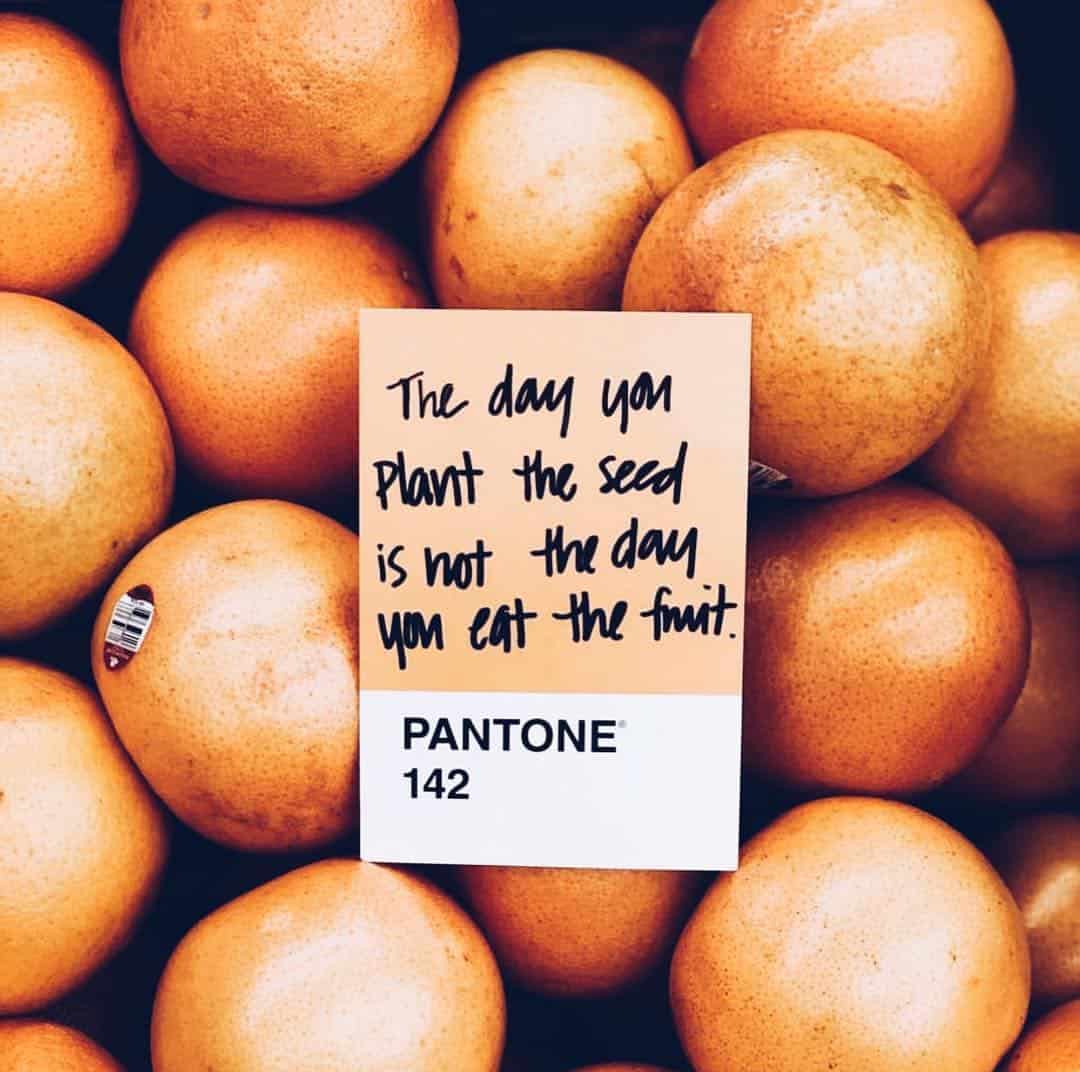 The day you
plant the seed
is not the day
you eat the fruit.
PANTONE®
142